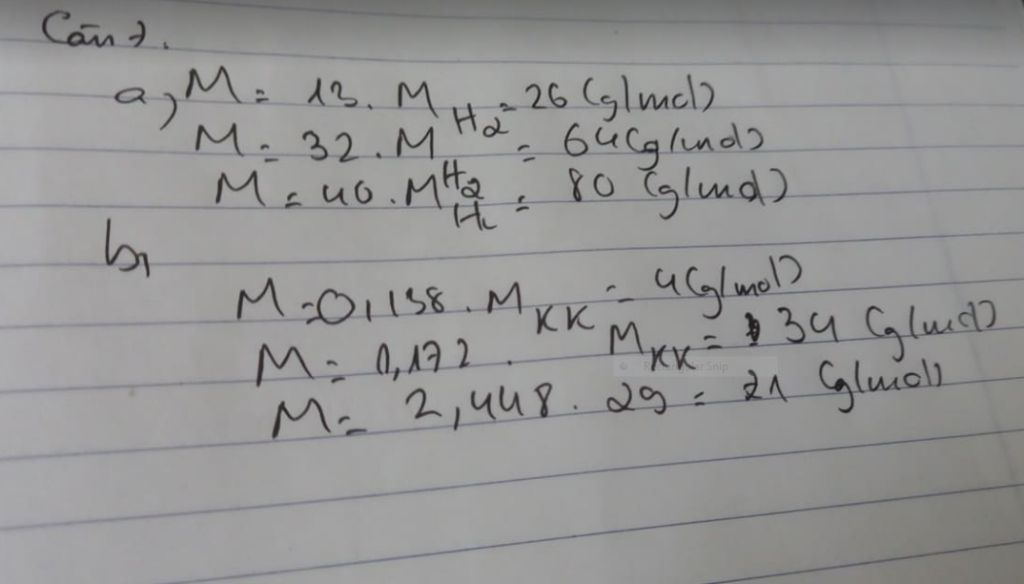 Câu 7.
a, M = 13. M H2 = 26 (g/mol)
M = 32. M H2 = 64 (g/mol)
M = 40. M H2 = 80 (g/mol)
b,
M = 0,138. M KK = 4 (g/mol)
M = 1,172. M KK = 34 (g/mol)
M = 2,448. 29 = 71 (g/mol)